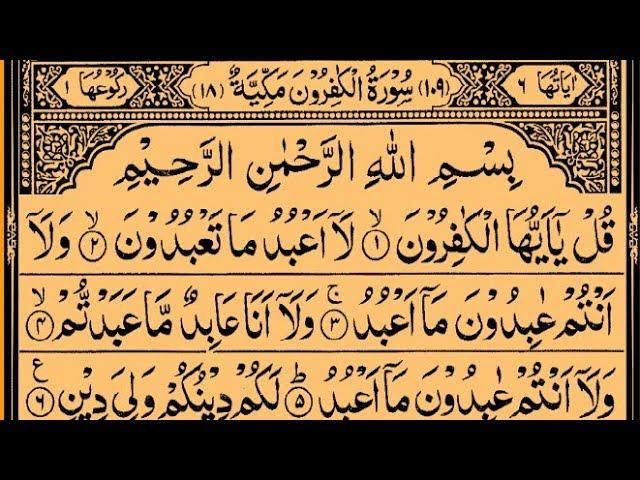 اٰيَاتُهَا ٦ (١٠٩) سُوْرَةُ الْكٰفِرُوْنَ مَكِّيَّةٌ (١٨) رُكُوْعُهَا ١
بِسْمِ اللّٰهِ الرَّحْمٰنِ الرَّحِيْمِ
قُلْ يٰۤاَيُّهَا الْكٰفِرُوْنَ ۙ﴿١﴾ لَاۤ اَعْبُدُ مَا تَعْبُدُوْنَ ۙ﴿٢﴾ وَلَاۤ
اَنْتُمْ عٰبِدُوْنَ مَاۤ اَعْبُدُ ۚ﴿٣﴾ وَلَاۤ اَنَا عَابِدٌ مَّا عَبَدْتُّمْ ۙ﴿٤﴾
وَلَاۤ اَنْتُمْ عٰبِدُوْنَ مَاۤ اَعْبُدُ ؕ﴿٥﴾ لَكُمْ دِيْنُكُمْ وَلِيَ دِيْنِ ﴿٦﴾ ع